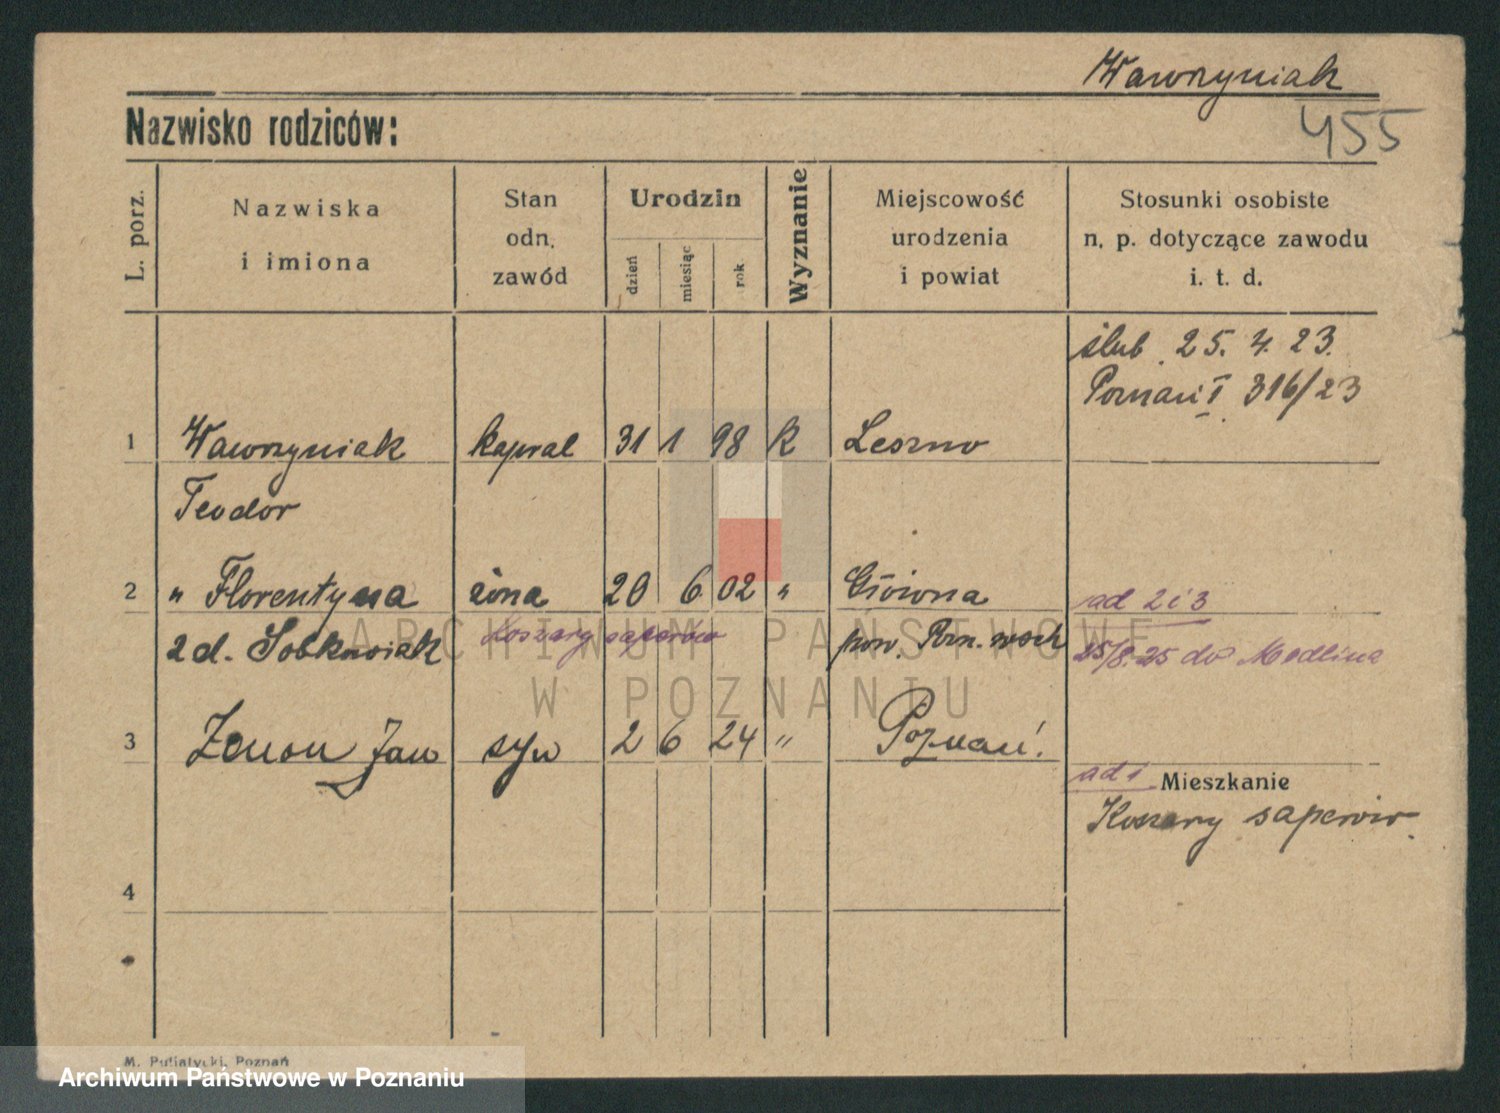 Wawrzyniak
Nazwisko rodziców:
455
L. porz.
Nazwiska
i imiona
Stan
odn.
zawód
Urodzin
dzień
miesiąc
rok
Wyznanie
Miejscowość
urodzenia
i powiat
Stosunki osobiste
n. p. dotyczące zawodu
i. t. d.
ślub 25. 4. 23.
Poznań I 316/23
1 Wawrzyniak kapral 31 1 98 k Leszno
Teodor
2 " Florentyna żona 20 6 02 " Główna
ad 2 i 3
2 d. Sobkowiak Koszary saperów pow. Pozn. wsch
25/8.25 do Modlina
ARCHIWUM PAŃSTWOWE
W POZNANIU
3 Zenon Jan syn 2 6 24 " Poznań.
ad 1 Mieszkanie
Koszary saperów.
4
M. Putiatycki, Poznań
Archiwum Państwowe w Poznaniu